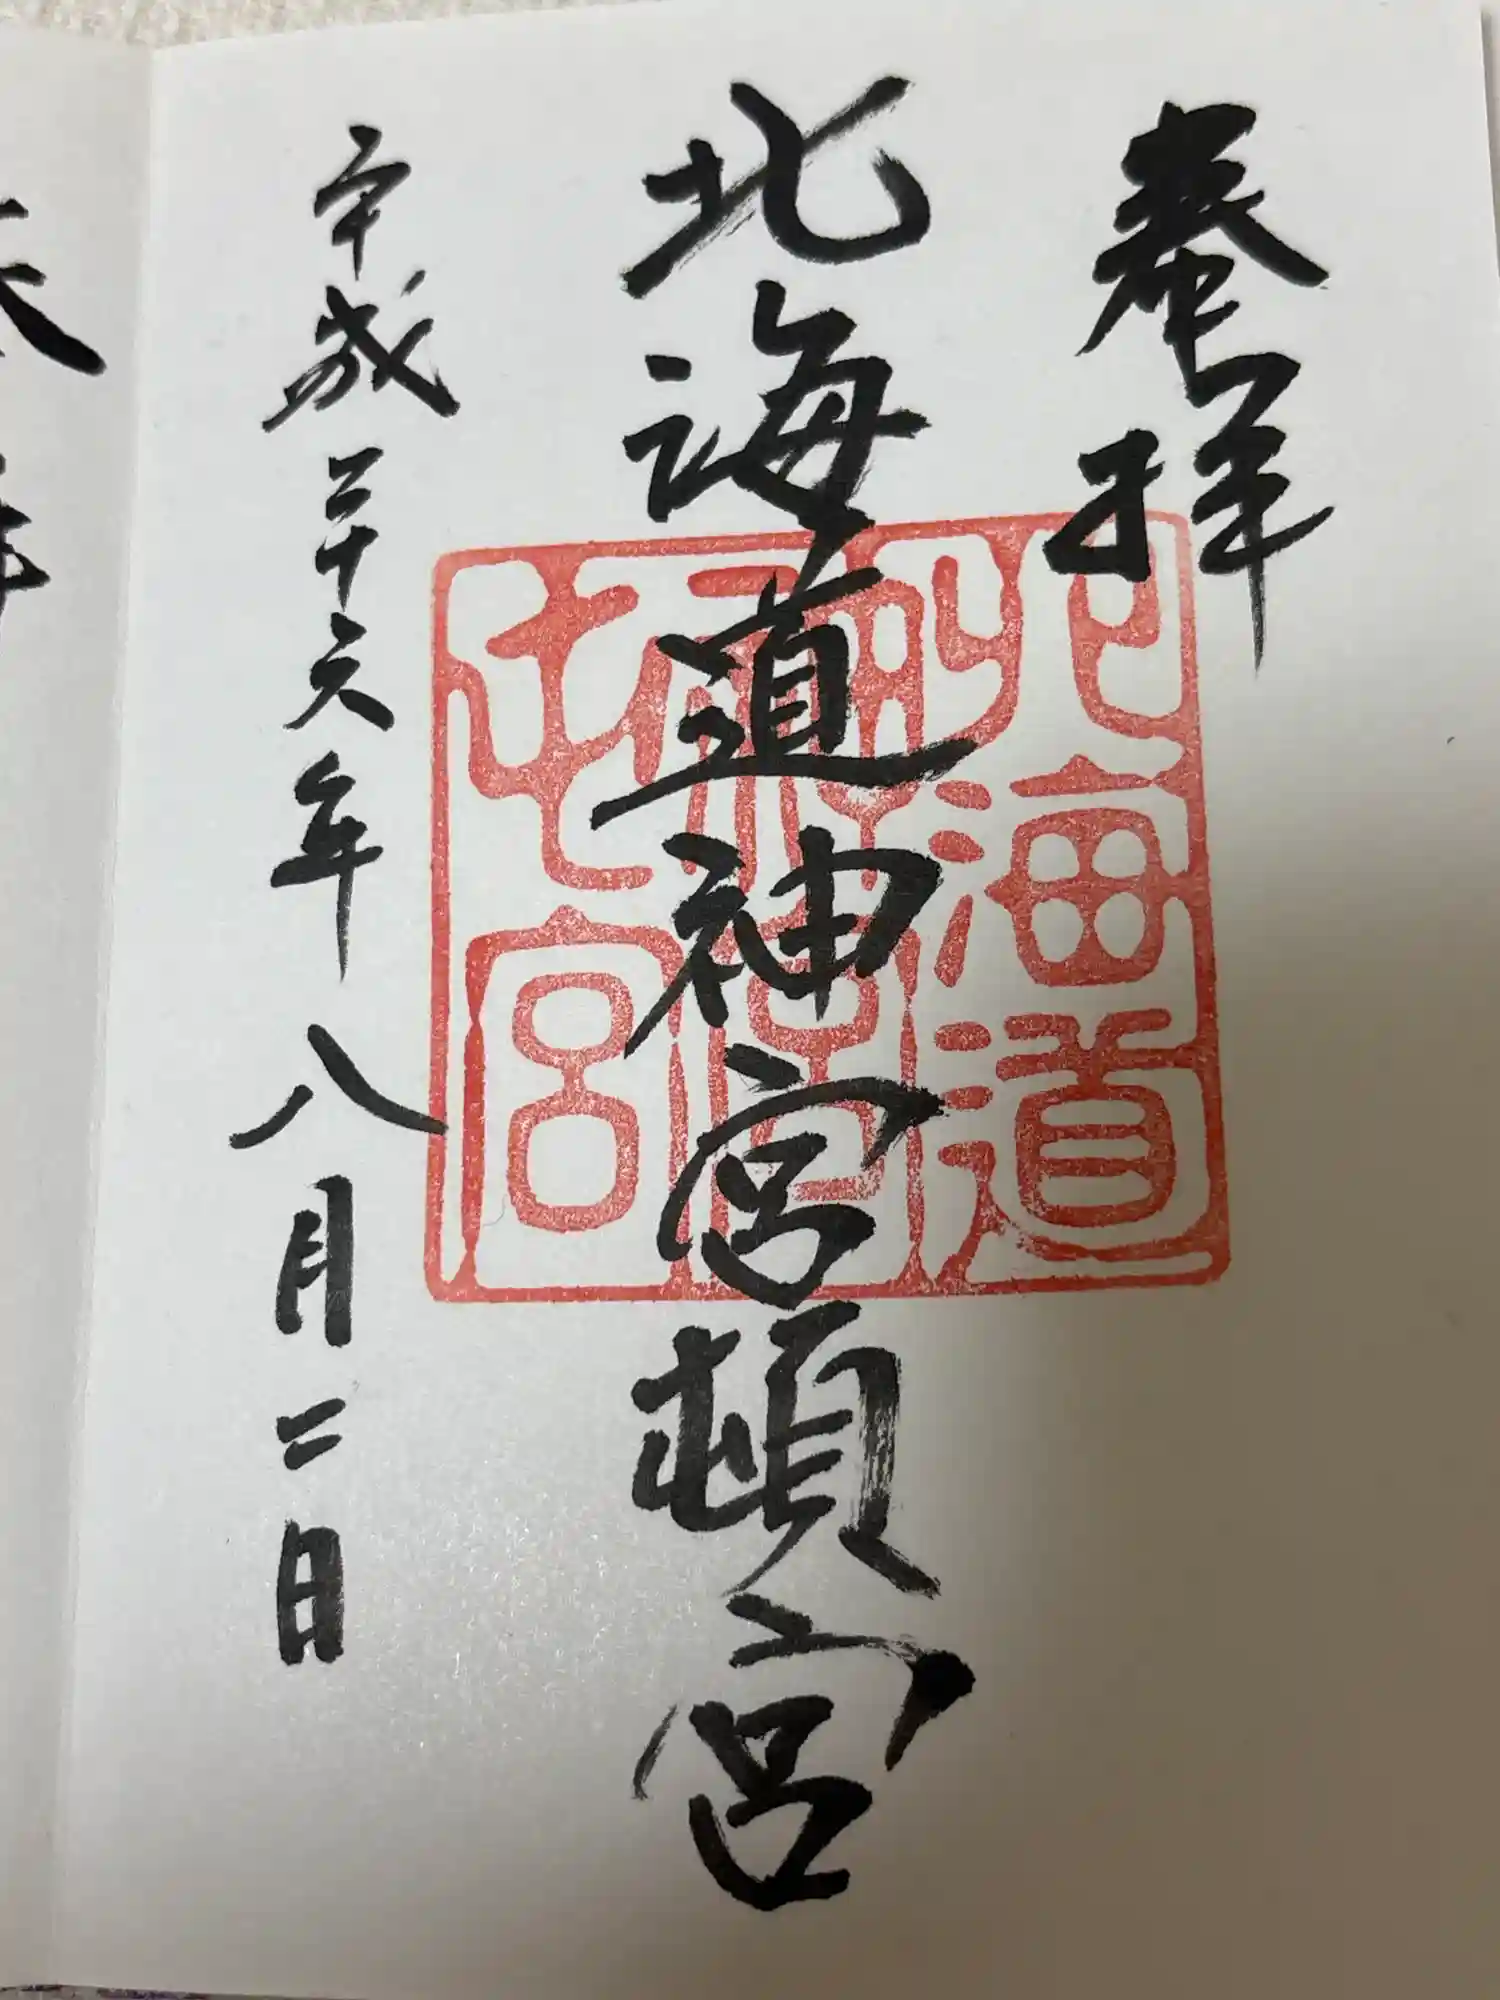 奉拝
北海道神宮頓宮
平成二十六年八月二日
北海道
神宮
頓宮